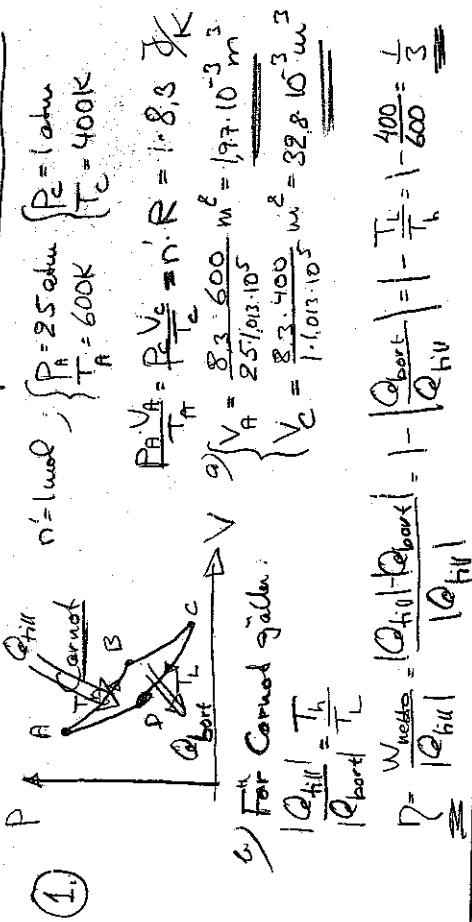 1.
P
A
Q till
Carnot
T h
B
D
T L
C
Q bort
V
n' = 1 mol ; { P_A = 25 atm { P_C = 1 atm
T_A = 600K T_C = 400K
P_A · V_A / T_A = P_C V_C / T_C = n' · R = 1 · 8,3 J/K
a) { V_A = 8,3 · 600 / 25 1,013 · 10^5 m^3 = 1,97 · 10^-3 m^3
V_C = 8,3 · 400 / 1 · 1,013 · 10^5 m^3 = 32,8 · 10^-3 m^3
b) För Carnot gäller:
|Q till| / |Q bort| = T h / T L
η = W netto / |Q till| = |Q till| - |Q bort| / |Q till| = 1 - |Q bort / Q till| = 1 - T L / T h = 1 - 400 / 600 = 1 / 3